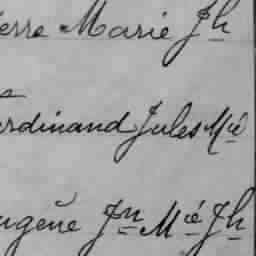 ierre Marie Jh
erdinand Jules Mie
ugène Jn Mie Jh